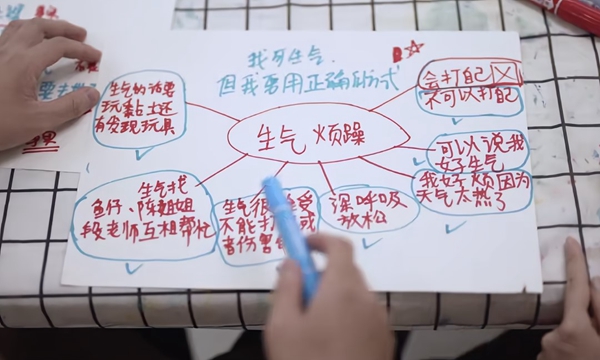 我可生气.
但我要用正确的方式
生气 烦躁
会打自己
不可以打自己
生气的话要
玩黏土还
有发现玩具
可以说我
好生气
我好烦因为
天气太热了
生气找
鱼仔、陈姐姐
段老师互相帮忙
生气很
受
不能打
或
者伤害
深呼吸
放松